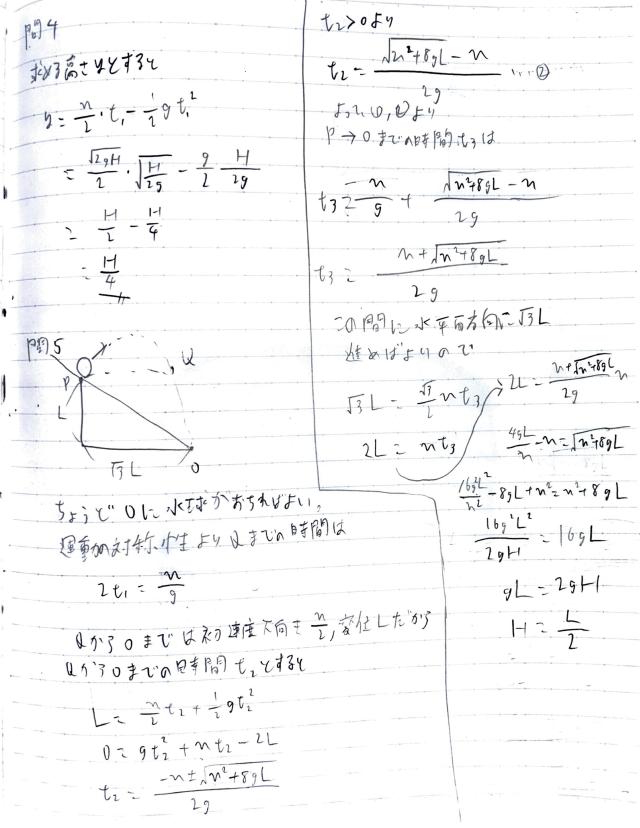 問4
求める高さyとすると
y = u/2・t₁ - 1/2 g t₁²
= √(2gH)/2・√(H/2g) - g/2 H/2g
= H/2 - H/4
= H/4
問5
P
Q
L
√3 L
O
ちょうどOに水球がおちればよい。
運動の対称性よりQまでの時間は
2t₁ = u/g
Qから0までは初速度下向き u/2, 変位Lだから
Qから0までの時間 t₂とすると
L = u/2 t₂ + 1/2 g t₂²
0 = g t₂² + u t₂ - 2L
t₂ = (-u ± √(u²+8gL))/2g
t₂>0より
t₂ = (√(u²+8gL) - u)/2g …②
よって①,②より
P→0までの時間t₃は
t₃ = u/g + (√(u²+8gL) - u)/2g
t₃ = (u + √(u²+8gL))/2g
この間に水平方向に√3L
進めばよいので
√3 L = √3/2 u t₃
2L = u t₃
2L = (u + √(u²+8gL))/2g u
4gL/u - u = √(u²+8gL)
16g²L²/u² - 8gL + u² = u² + 8gL
16g²L²/2gH = 16gL
gL = 2gH
H = L/2